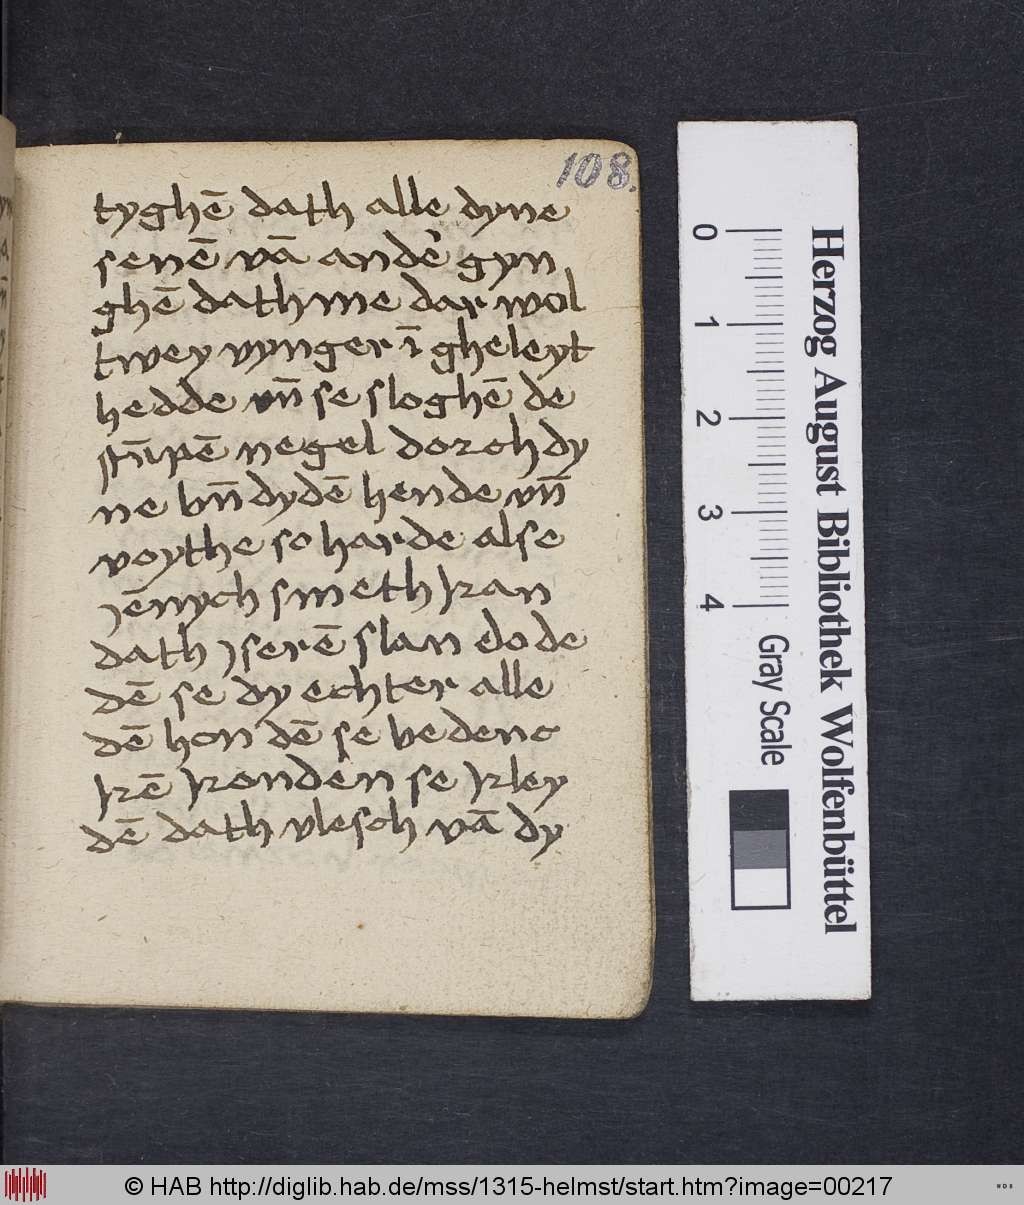 108.
tyghē dath alle dyne
senē vā andē gyn
ghē dath me dar wol
twey vynger ī gheleyt
hedde vn̄ se sloghē de
negel dorch dy
ne vn̄ dydē hende vn̄
voythe so harde alse
jēnych smeth kan
dath jserē slan do de
dē se dy echter alle
dē hon dē se bedenc
kē konden se kley
dē dath vlesch vā dy
Herzog August Bibliothek Wolfenbüttel
0 1 2 3 4
Gray Scale
© HAB http://diglib.hab.de/mss/1315-helmst/start.htm?image=00217